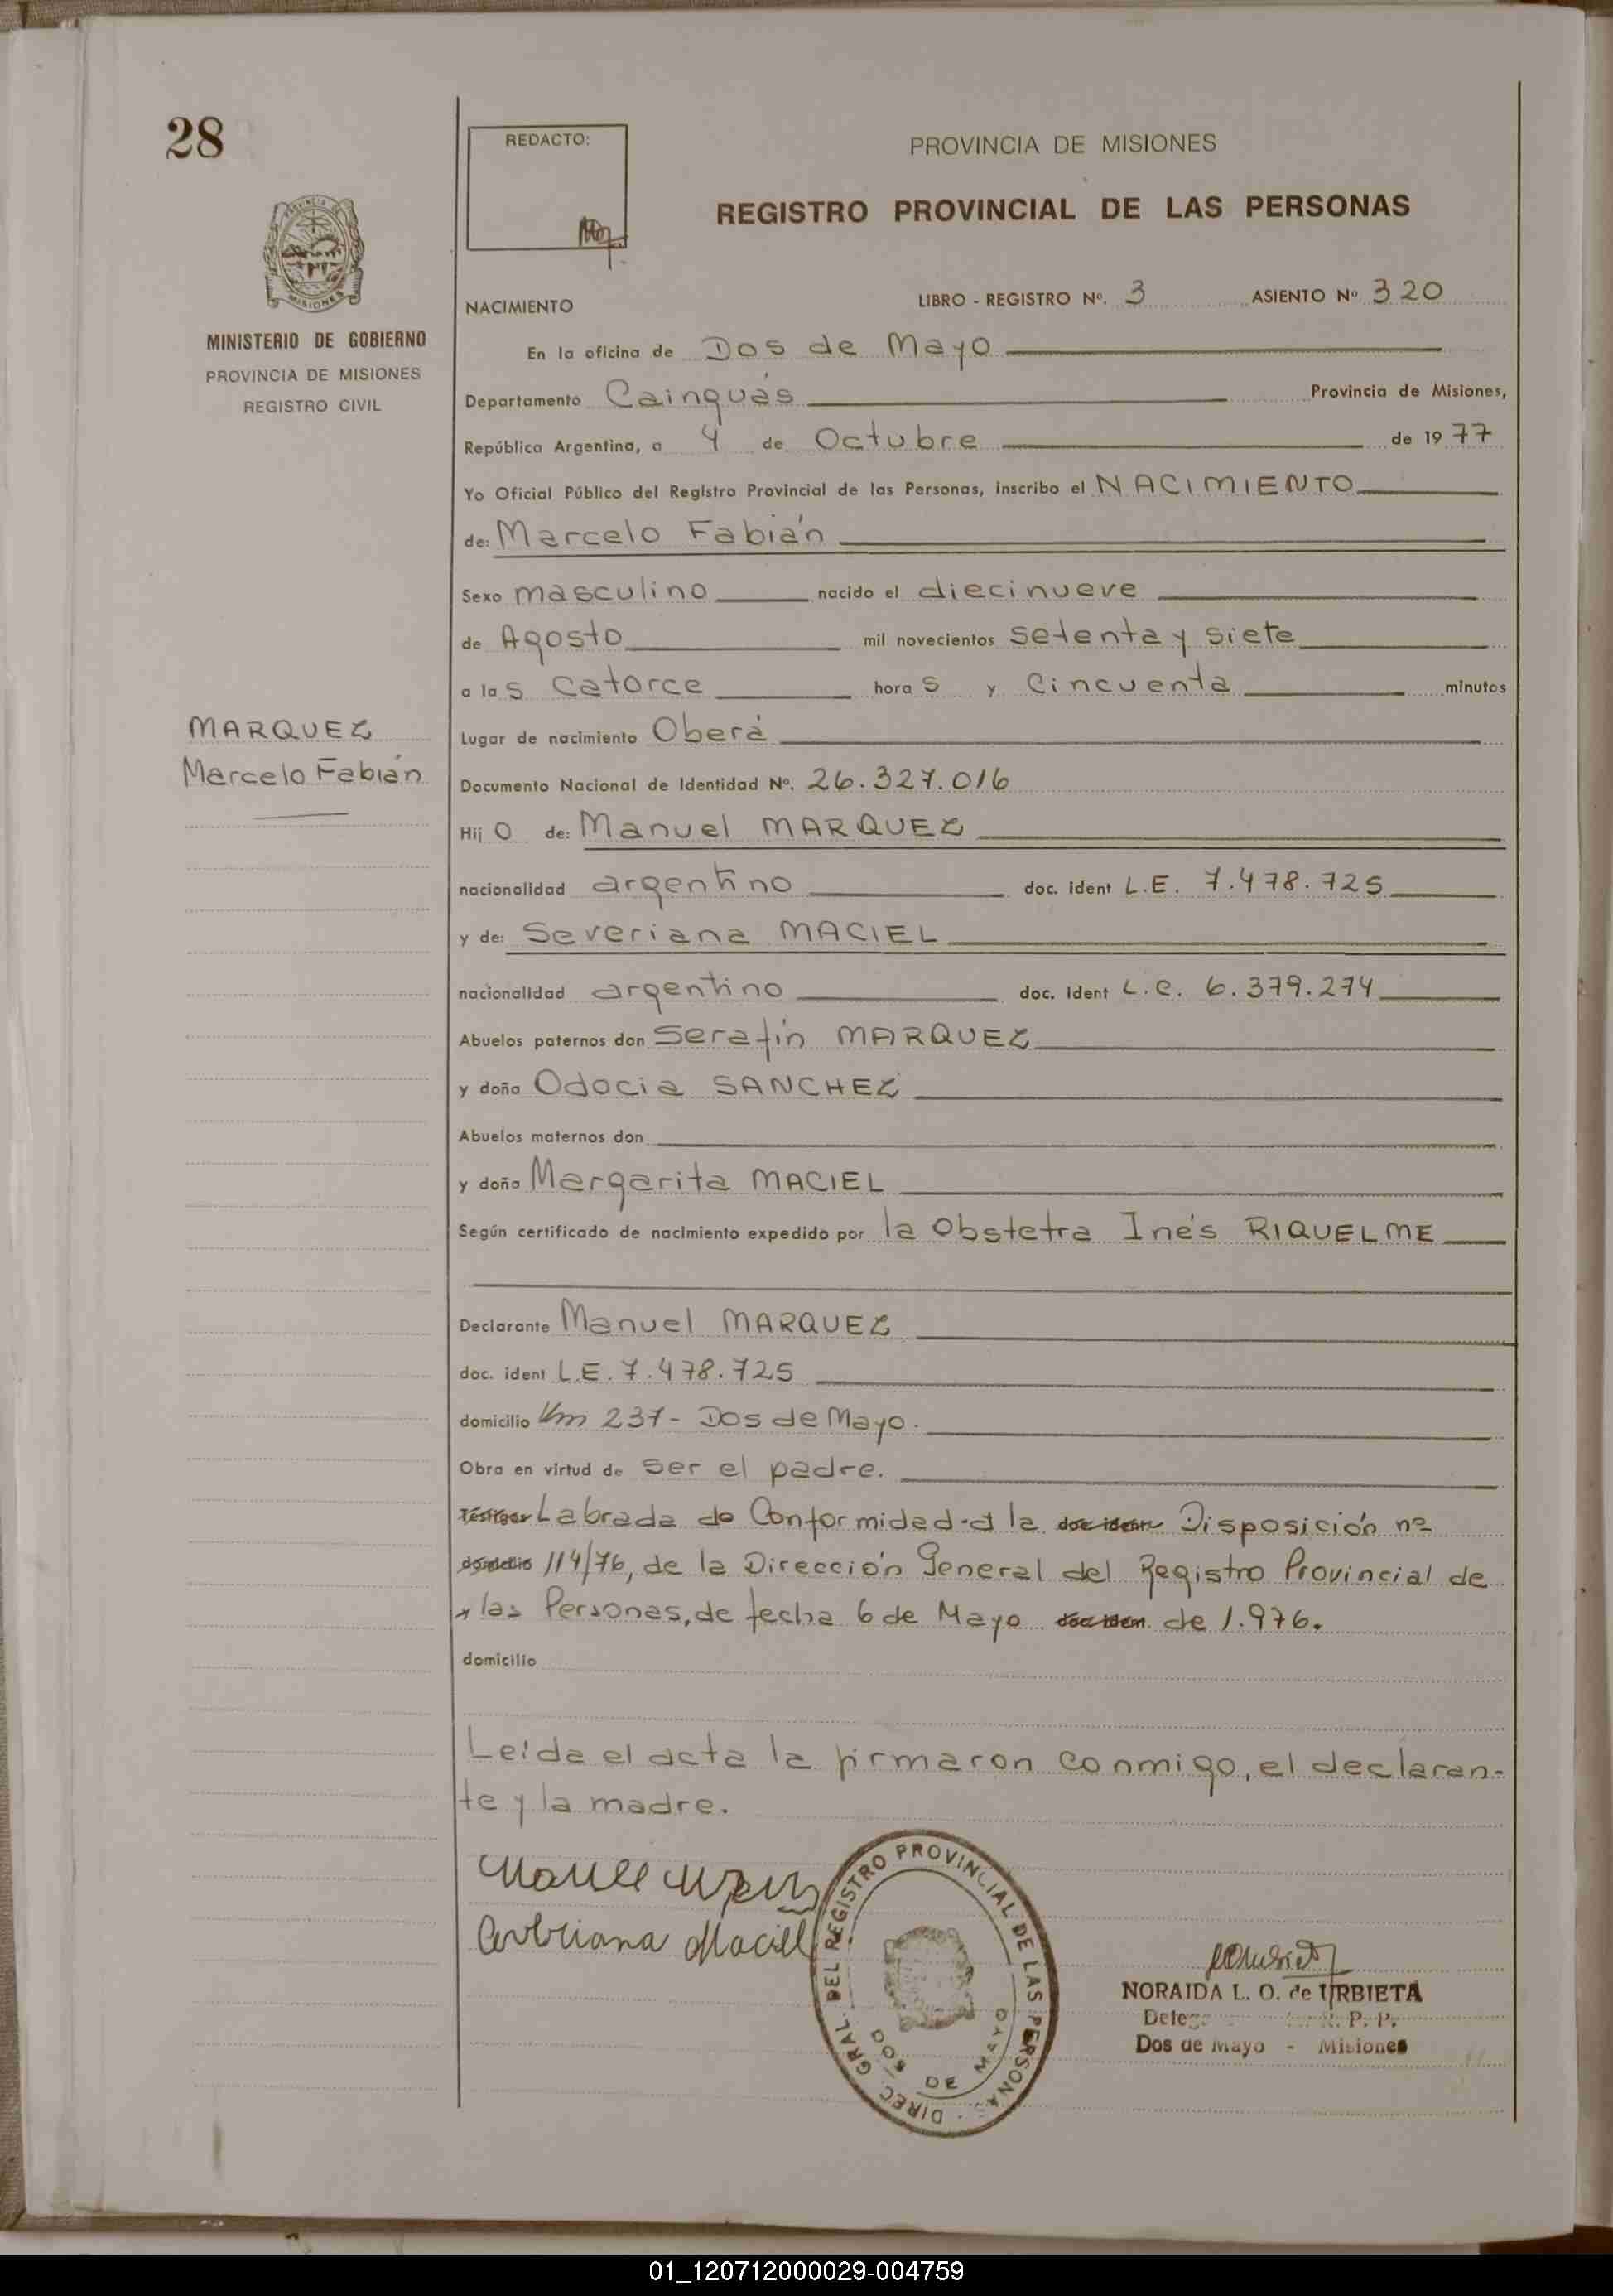 28
REDACTO:
PROVINCIA DE MISIONES
REGISTRO PROVINCIAL DE LAS PERSONAS
MINISTERIO DE GOBIERNO
PROVINCIA DE MISIONES
REGISTRO CIVIL
NACIMIENTO LIBRO - REGISTRO Nº. 3 ASIENTO Nº 320
En la oficina de Dos de Mayo
Departamento Cainguás Provincia de Misiones,
República Argentina, a 4 de Octubre de 1977
Yo Oficial Público del Registro Provincial de las Personas, inscribo el NACIMIENTO
de: Marcelo Fabián
Sexo masculino nacido el diecinueve
de Agosto mil novecientos setenta y siete
a las catorce horas y cincuenta minutos
MARQUEZ
Marcelo Fabián
Lugar de nacimiento Oberá
Documento Nacional de Identidad Nº. 26.327.016
Hijo de: Manuel MARQUEZ
nacionalidad argentino doc. ident L.E. 7.478.725
y de: Severiana MACIEL
nacionalidad argentino doc. ident L.C. 6.379.274
Abuelos paternos don Serafín MARQUEZ
y doña Odocia SANCHEZ
Abuelos maternos don
y doña Margarita MACIEL
Según certificado de nacimiento expedido por la Obstetra Inés RIQUELME
Declarante Manuel MARQUEZ
doc. ident L.E. 7.478.725
domicilio Km 237 - Dos de Mayo.
Obra en virtud de ser el padre.
Testigos Labrada de Conformidad a la doc ident Disposición nº
domicilio 114/76, de la Dirección General del Registro Provincial de
y las Personas, de fecha 6 de Mayo doc iden. de 1.976.
domicilio
Leída el acta la firmaron conmigo, el declaran-
te y la madre.
Maciel
DIREC. GRAL. DEL REGISTRO PROVINCIAL DE LAS PERSONAS
DOS DE MAYO
NORAIDA L. O. de URBIETA
R. P. P.
Dos de Mayo - Misiones
01_120712000029-004759